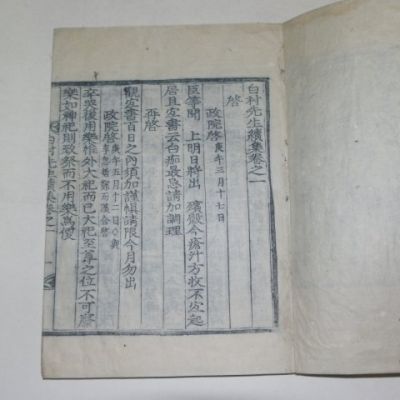 白村先生續集卷之一
啓
政院啓 庚午三月十七日
臣等聞 上明日將出 殯殿今瘡汁方收不定起
居且定書云白痂最忌請加調理
再啓
觀定書百日之內須加謹愼請限今月勿出
政院啓 庚午五月十二日
卒哭後用樂惟外大祀而已大祀至尊之位不可廢
樂如神祀則致祭而不用樂爲便
白村先生續集卷之一